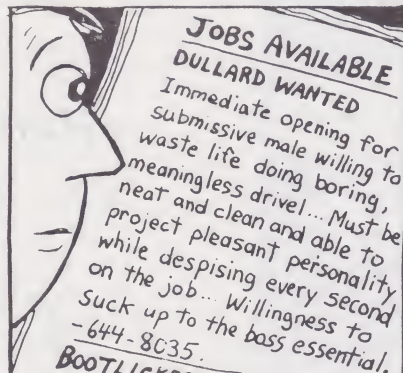 JOBS AVAILABLE
DULLARD WANTED
Immediate opening for
submissive male willing to
waste life doing boring,
meaningless drivel... Must be
neat and clean and able to
project pleasant personality
while despising every second
on the job... Willingness to
suck up to the boss essential.
-644-8035.